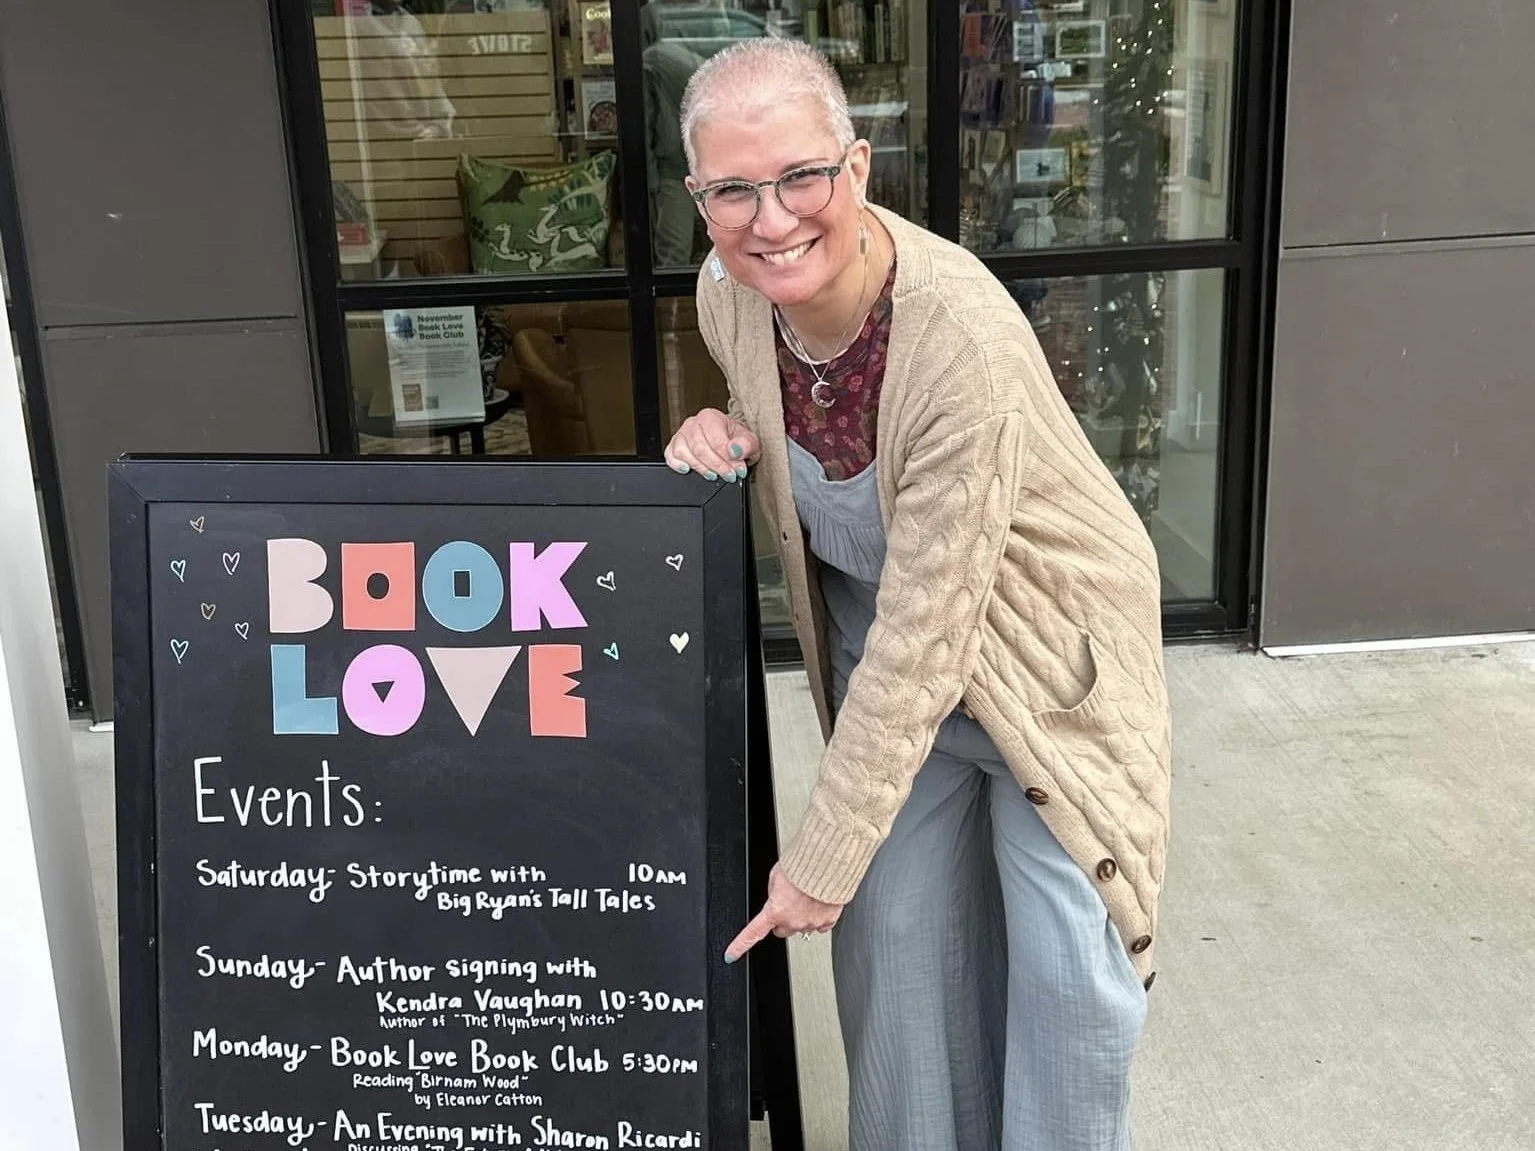 STOVE
November
Book Love
Book Club
BOOK
LOVE
Events:
Saturday- Storytime with 10AM
Big Ryan's Tall Tales
Sunday- Author signing with
Kendra Vaughan 10:30AM
Author of "The Plymbury Witch"
Monday- Book Love Book Club 5:30PM
Reading "Birnam Wood"
by Eleanor Catton
Tuesday- An Evening with Sharon Ricardi
Discussing